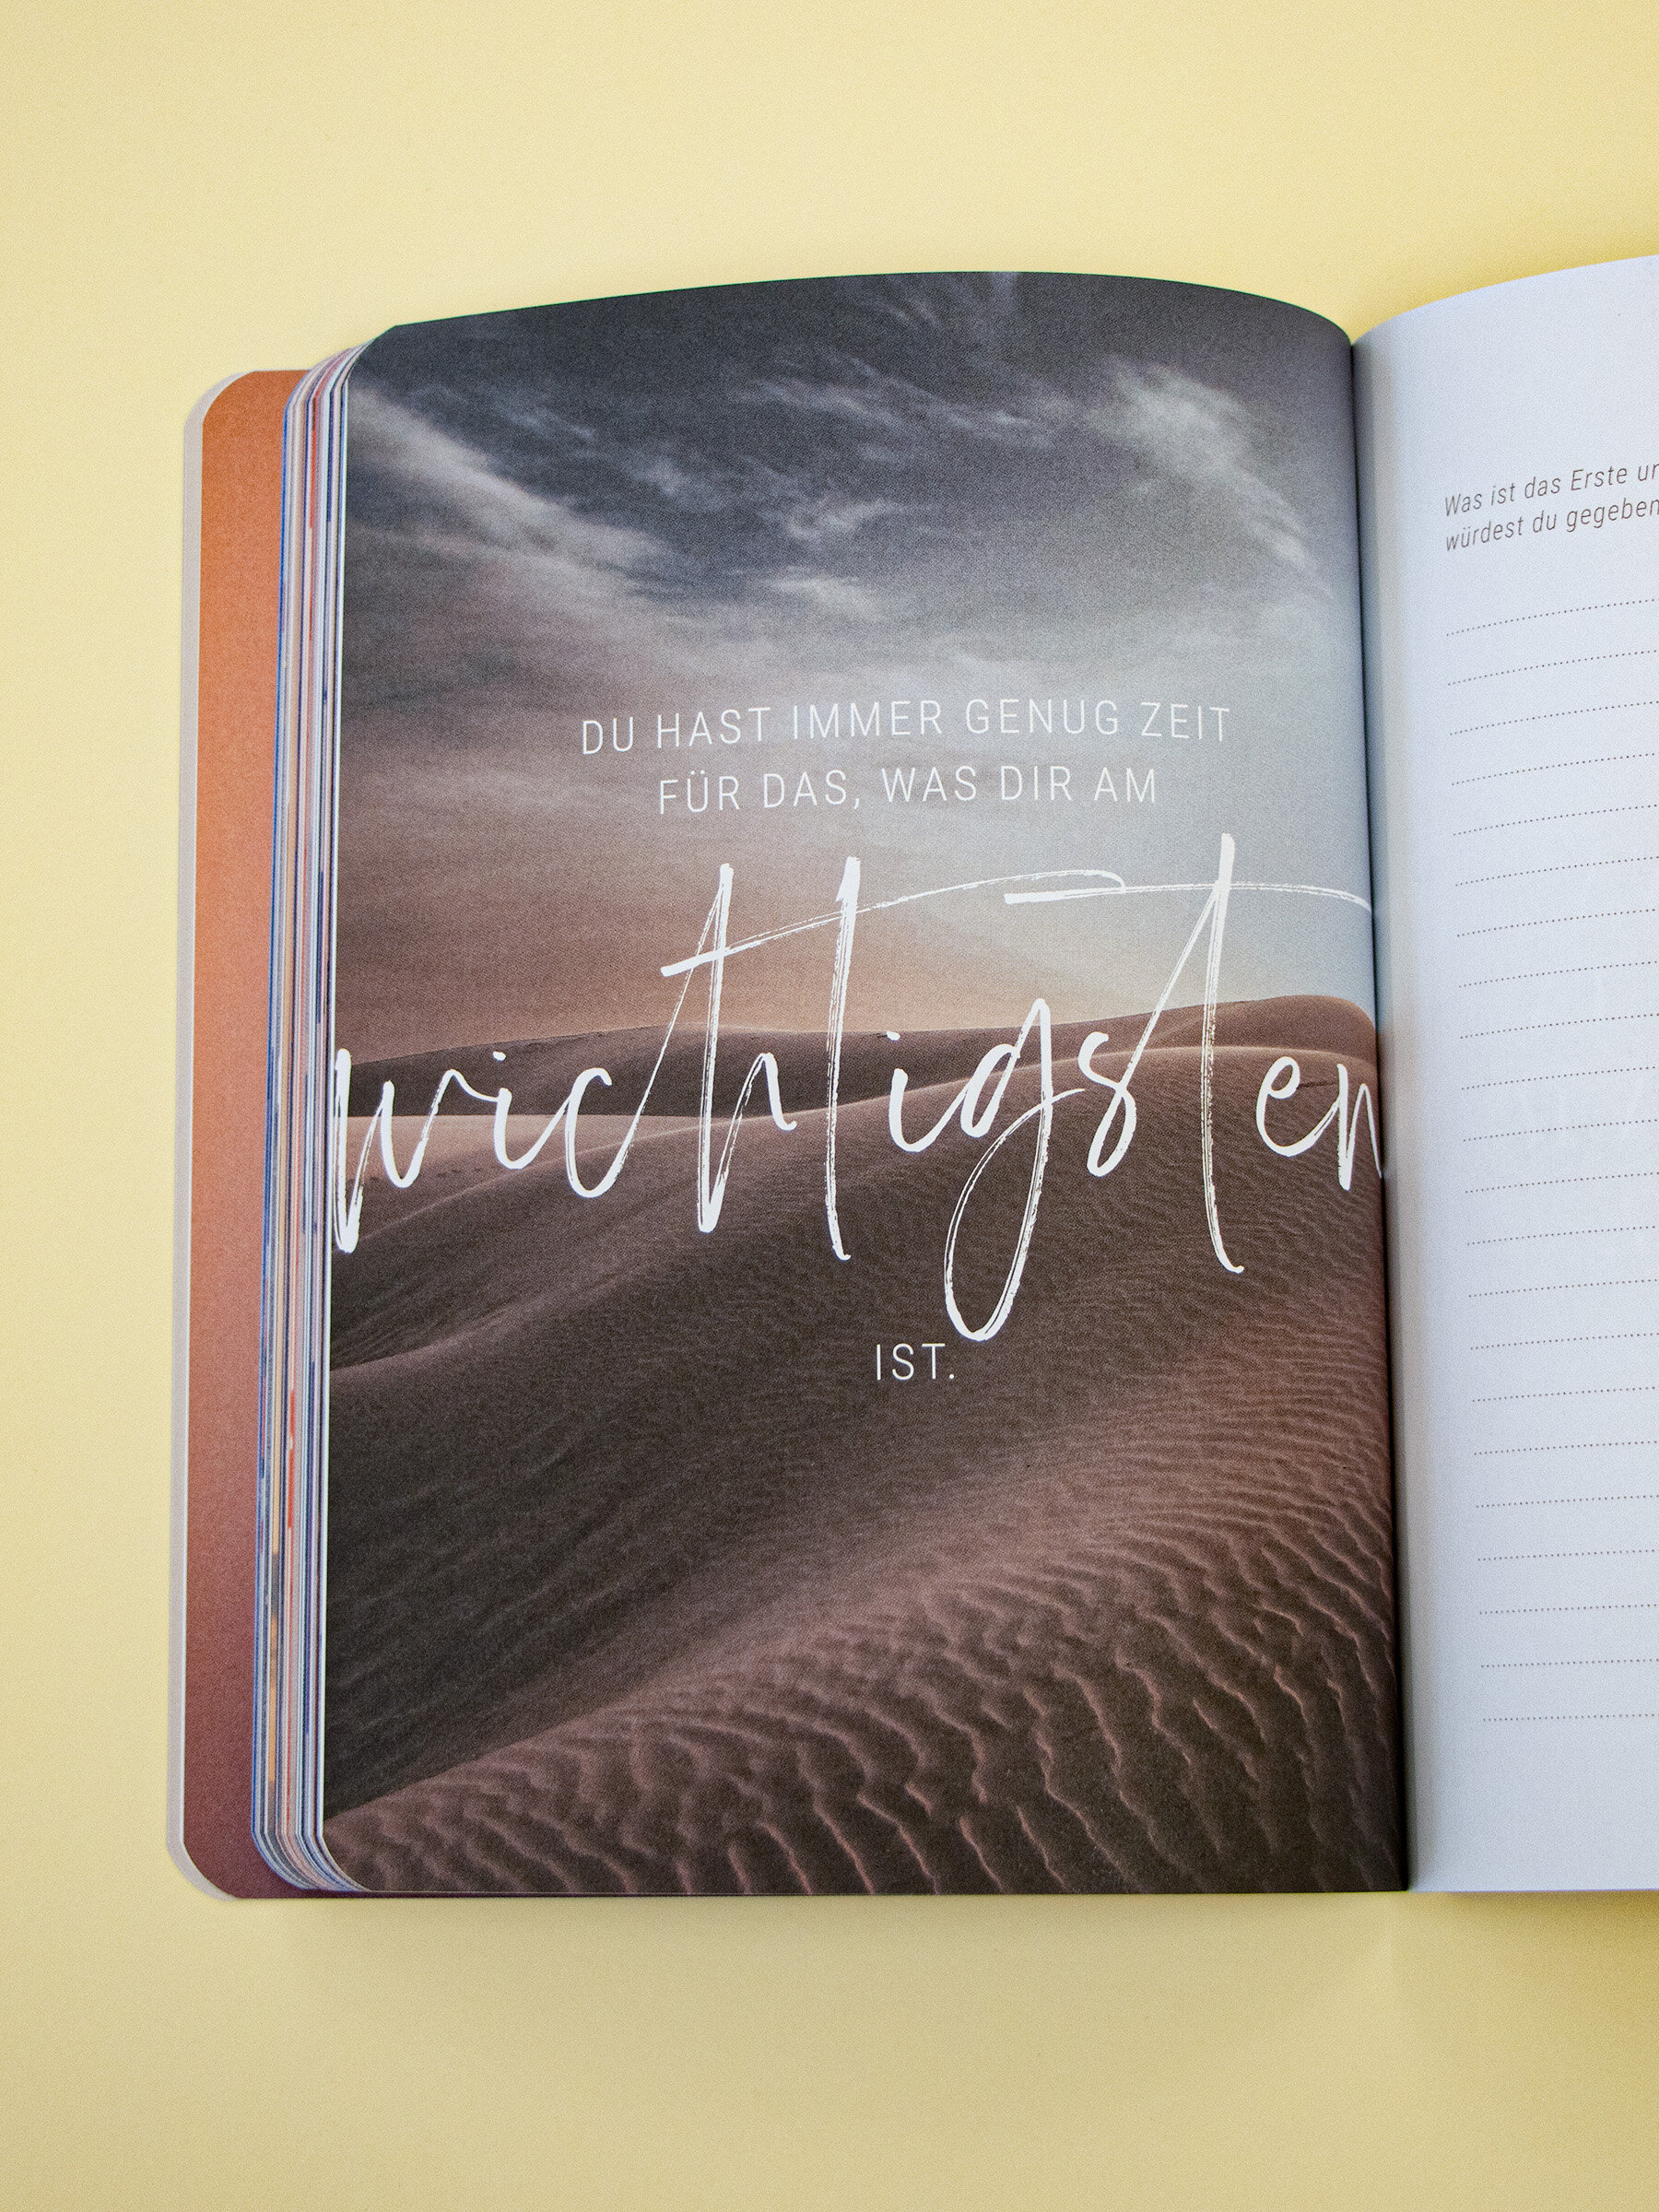 DU HAST IMMER GENUG ZEIT
FÜR DAS, WAS DIR AM
wichtigsten
IST.
Was ist das Erste
würdest du gegeben